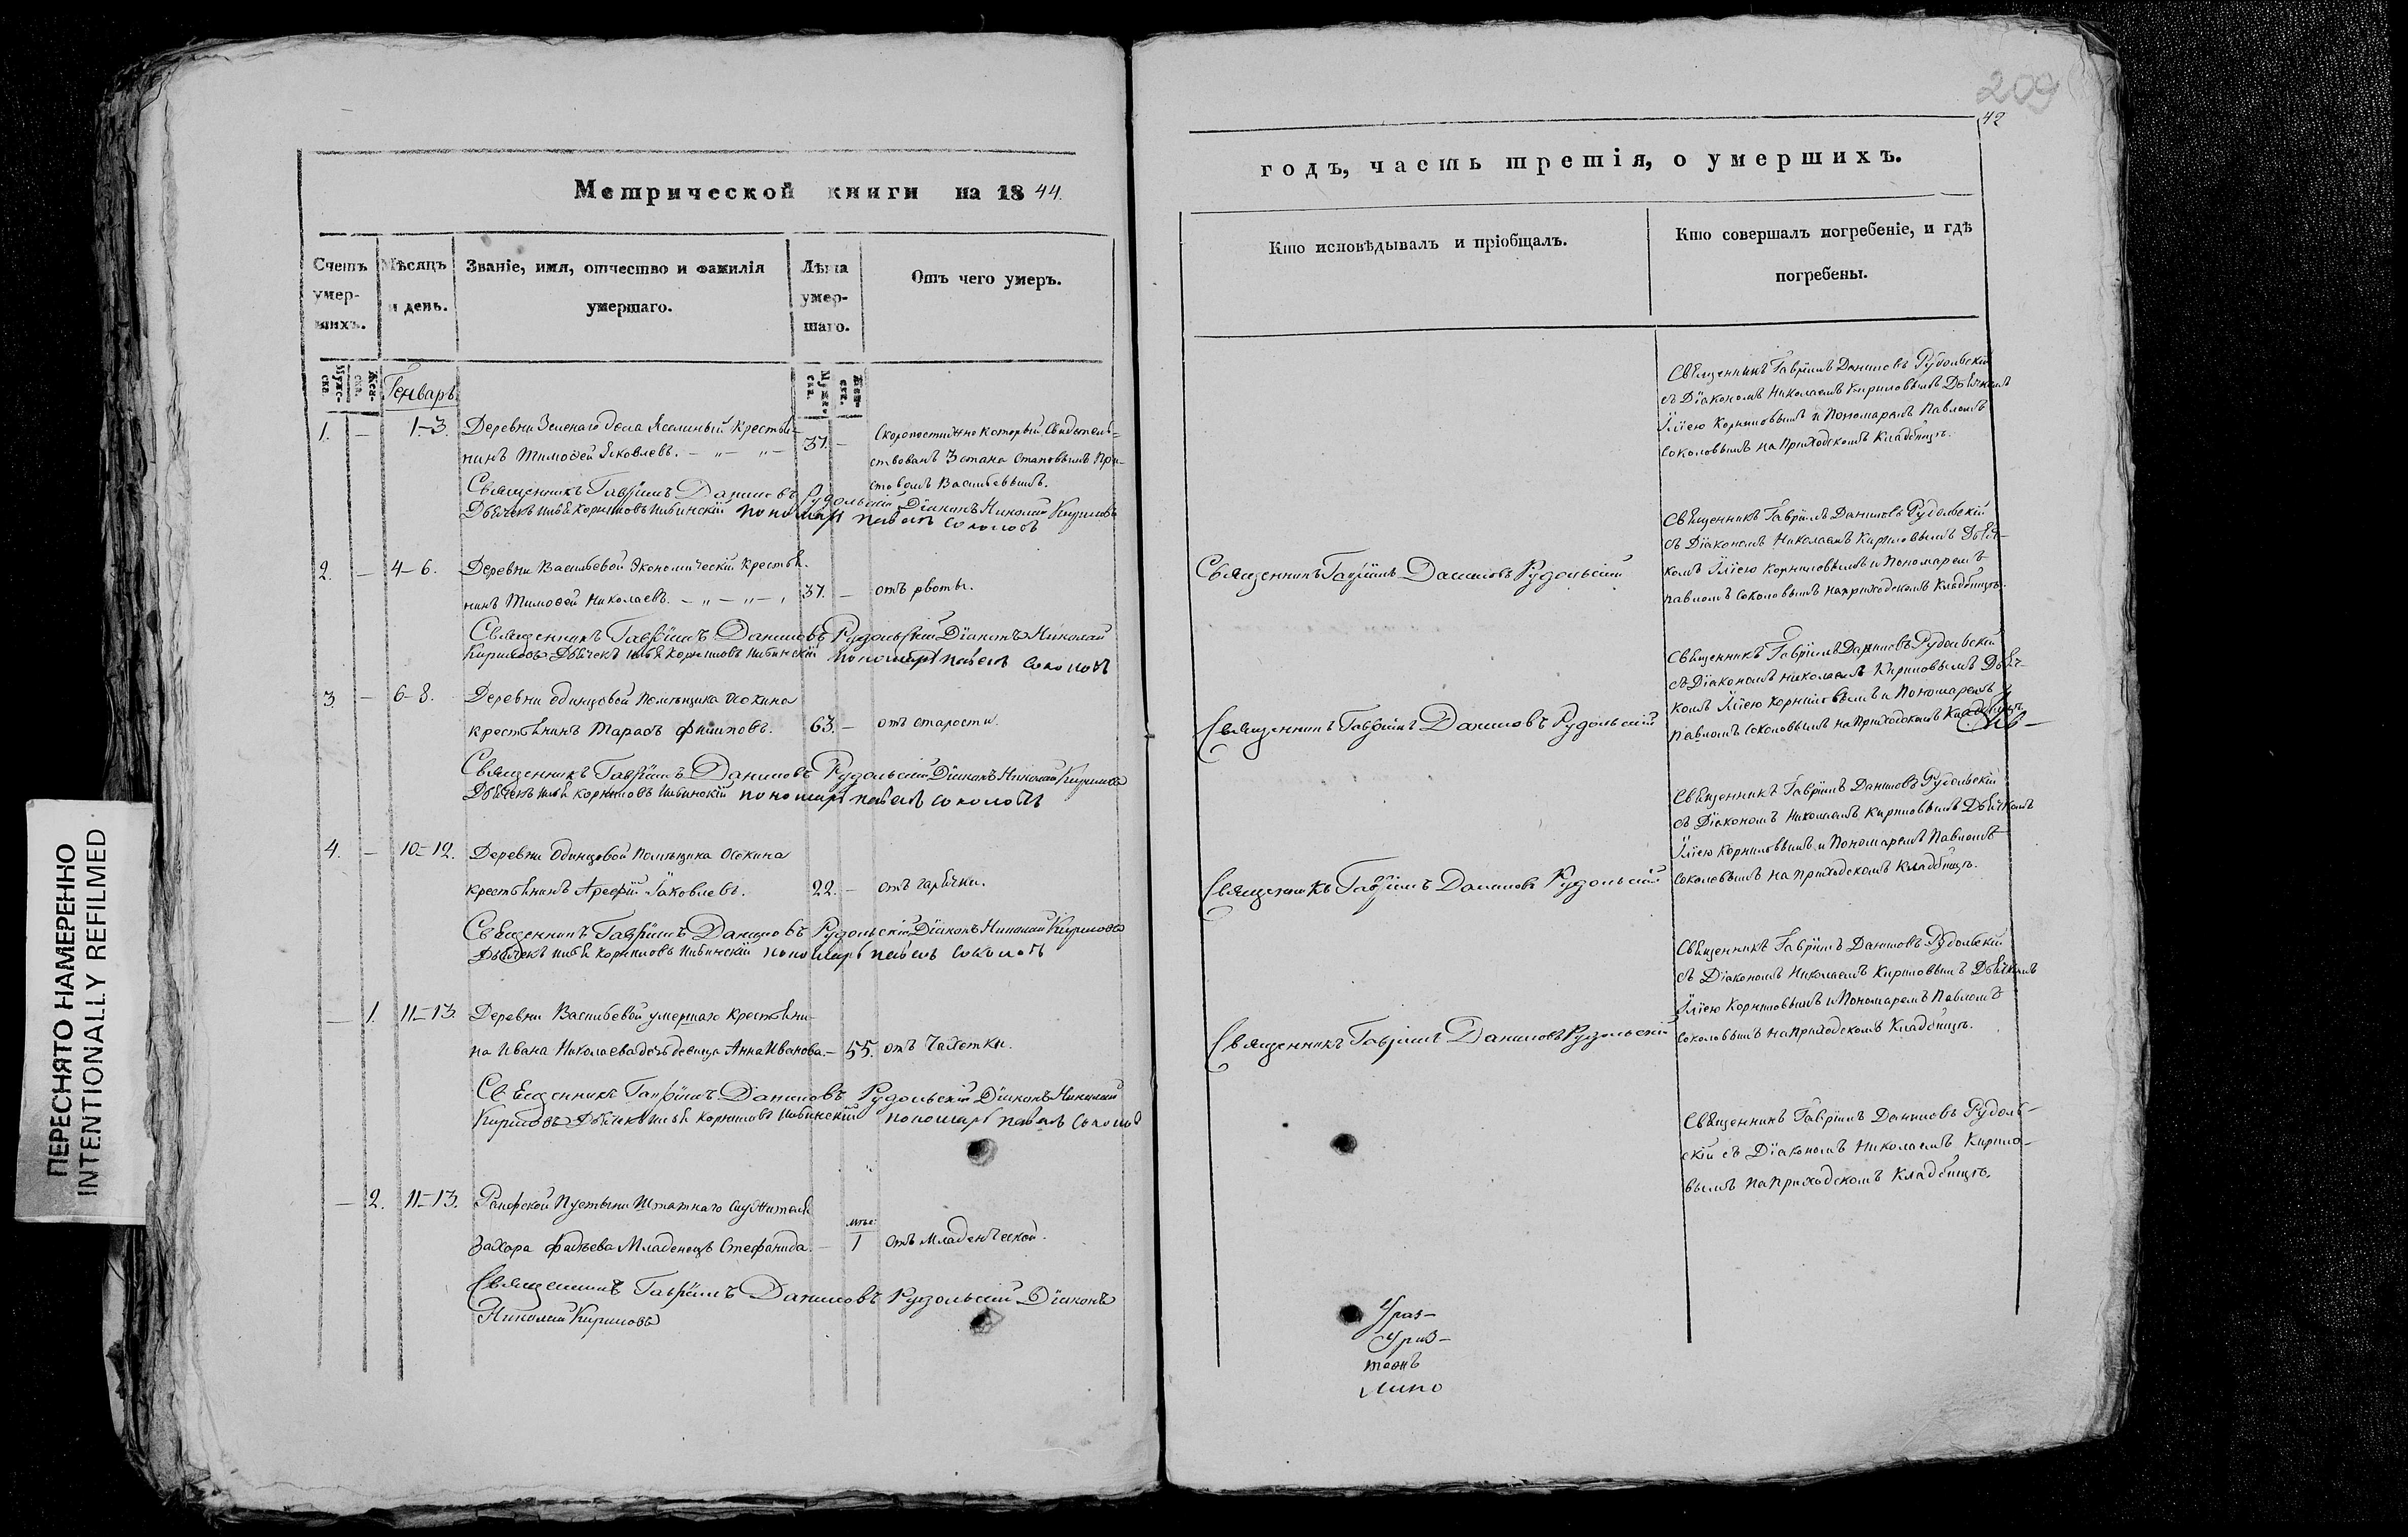 ПЕРЕСНЯТО НАМЕРЕННО
INTENTIONALLY REFILMED
Метрической книги на 1844.
Счетъ умер-шихъ.
Мѣсяцъ и день.
Званіе, имя, отчество и фамилія умершаго.
Лѣта умер-шаго.
Отъ чего умеръ.
Мужес-ка.
Жен-ска.
Генварь
Мужес-ка.
Жен-ска.
1. — 1-3. Деревни Зеленаго дола Ясашный крестья-
нинъ Тимофей Яковлевъ. — „ — „ — 37. — Скоропостижно который свидетель-
ствованъ 3 стана Становымъ При-
ставомъ Васильевымъ.
Священникъ Гавріилъ Даниловъ Рудольскій Діаконъ Николай Кириловъ
Дьячекъ Илья Корниловъ Пономарь Павелъ Соколовъ
2. — 4-6. Деревни Васильевой Экономическій крестья-
нинъ Тимофей Николаевъ. — „ — „ — 37. — отъ рвоты.
Священникъ Гавріилъ Даниловъ Рудольскій Діаконъ Николай
Кириловъ Дьячекъ Илья Корниловъ Пономарь Павелъ Соколовъ
3 — 6-8. Деревни Одинцовой Помѣщика Осокина
крестьянинъ Тарасъ Филиповъ. 63. — отъ старости.
Священникъ Гавріилъ Даниловъ Рудольскій Діаконъ Николай Кириловъ
Дьячекъ Илья Корниловъ Пономарь Павелъ Соколовъ
4. — 10-12. Деревни Одинцовой Помѣщика Осокина
крестьянинъ Арефій Яковлевъ. 22. — отъ гарячки.
Священникъ Гавріилъ Даниловъ Рудольскій Діаконъ Николай Кириловъ
Дьячекъ Илья Корниловъ Пономарь Павелъ Соколовъ
— 1. 11-13. Деревни Васильевой умершаго крестьяни-
на Ивана Николаева дочь девица Анна Иванова. — 55. отъ Чахотки.
Священникъ Гавріилъ Даниловъ Рудольскій Діаконъ Николай
Кириловъ Дьячекъ Илья Корниловъ Пономарь Павелъ Соколовъ
— 2. 11-13. Раифской Пустыни Штатнаго служителя
Захара Фадѣева Младенецъ Стефанида. — 1 отъ Младенческой.
Священникъ Гавріилъ Даниловъ Рудольскій Діаконъ
Николай Кириловъ
209
42
годъ, часть третія, о умершихъ.
Кто исповѣдывалъ и пріобщалъ.
Кто совершалъ погребеніе, и гдѣ погребены.
Священникъ Гавріилъ Даниловъ Рудольскій
съ Діакономъ Николаемъ Кириловымъ Дьячкомъ
Іліею Корниловымъ и Пономаремъ Павломъ
Соколовымъ на Приходскомъ Кладбищѣ.
Священникъ Гавріилъ Даниловъ Рудольскій
Священникъ Гавріилъ Даниловъ Рудольскій
съ Діакономъ Николаемъ Кириловымъ Дьяч-
комъ Іліею Корниловымъ и Пономаремъ
Павломъ Соколовымъ на приходскомъ Кладбищѣ.
Священникъ Гавріилъ Даниловъ Рудольскій
Священникъ Гавріилъ Даниловъ Рудольскій
съ Діакономъ Николаемъ Кириловымъ Дьяч-
комъ Іліею Корниловымъ и Пономаремъ
Павломъ Соколовымъ на Приходскомъ Кладбищѣ
Священникъ Гавріилъ Даниловъ Рудольскій
Священникъ Гавріилъ Даниловъ Рудольскій
съ Діакономъ Николаемъ Кириловымъ Дьячкомъ
Іліею Корниловымъ и Пономаремъ Павломъ
Соколовымъ на Приходскомъ Кладбищѣ.
Священникъ Гавріилъ Даниловъ Рудольскій
Священникъ Гавріилъ Даниловъ Рудольскій
съ Діакономъ Николаемъ Кириловымъ Дьячкомъ
Іліею Корниловымъ и Пономаремъ Павломъ
Соколовымъ на Приходскомъ Кладбищѣ.
Священникъ Гавріилъ Даниловъ Рудоль-
скій съ Діакономъ Николаемъ Кирило-
вымъ на Приходскомъ Кладбищѣ.